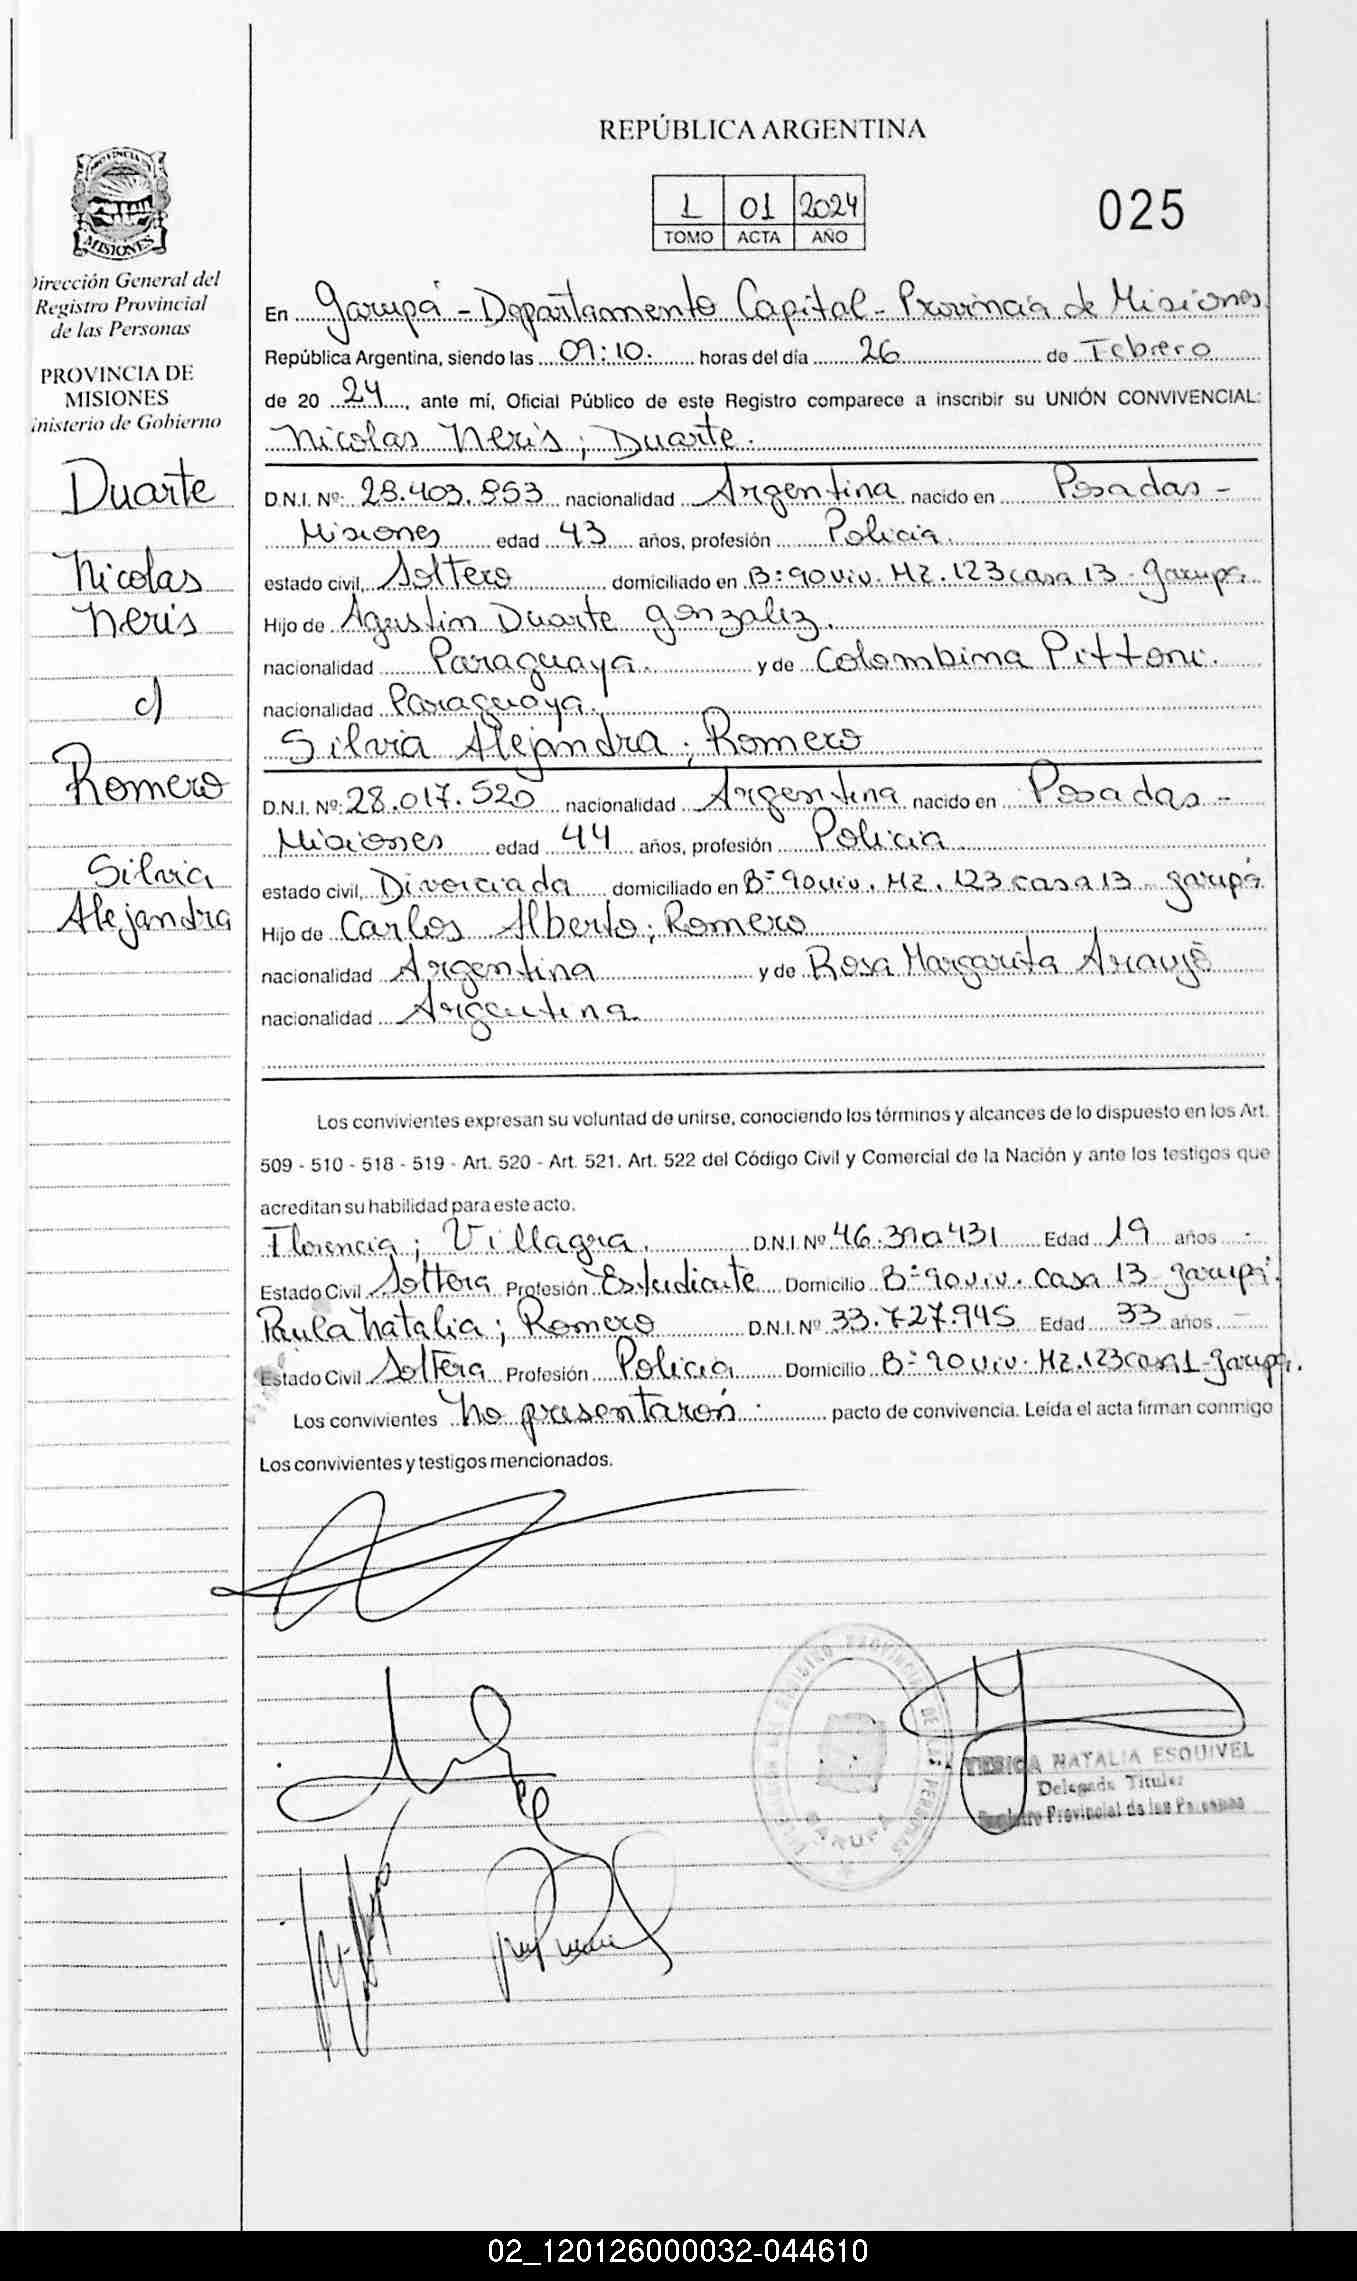 REPÚBLICA ARGENTINA
1 01 2024
TOMO ACTA AÑO
025
PROVINCIA
MISIONES
Dirección General del
Registro Provincial
de las Personas
PROVINCIA DE
MISIONES
inisterio de Gobierno
Duarte
Nicolas
Neris
c/
Romero
Silvia
Alejandra
En Garupá - Departamento Capital - Provincia de Misiones
República Argentina, siendo las 09:10. horas del día 26 de Febrero
de 20 24, ante mí, Oficial Público de este Registro comparece a inscribir su UNIÓN CONVIVENCIAL:
Nicolas Neris; Duarte.
D.N.I. Nº: 28.403.853 nacionalidad Argentina nacido en Posadas -
Misiones edad 43 años, profesión Policia.
estado civil, Soltero domiciliado en B: 90 viv. Mz. 123 casa 13 - Garupá
Hijo de Agustin Duarte Gonzalez.
nacionalidad Paraguaya. y de Colombina Pittoni.
nacionalidad Paraguaya.
Silvia Alejandra; Romero
D.N.I. Nº: 28.017.520 nacionalidad Argentina nacido en Posadas -
Misiones edad 44 años, profesión Policia
estado civil, Divorciada domiciliado en Bº 90 viv. Mz. 123 casa 13 - Garupá
Hijo de Carlos Alberto; Romero
nacionalidad Argentina y de Rosa Margarita Araujo
nacionalidad Argentina
Los convivientes expresan su voluntad de unirse, conociendo los términos y alcances de lo dispuesto en los Art.
509 - 510 - 518 - 519 - Art. 520 - Art. 521, Art. 522 del Código Civil y Comercial de la Nación y ante los testigos que
acreditan su habilidad para este acto.
Florencia; Villagra. D.N.I. Nº 46.310431 Edad 19 años -
Estado Civil Soltera Profesión Estudiante Domicilio Bº 90 viv. casa 13 - Garupá.
Paula Natalia; Romero D.N.I. Nº 33.727.945 Edad 33 años -
Estado Civil Soltera Profesión Policia Domicilio Bº 90 viv. Mz. 123 casa 1 - Garupá.
Los convivientes no presentaron. pacto de convivencia. Leída el acta firman conmigo
Los convivientes y testigos mencionados.
REGISTRO PROVINCIAL DE LAS PERSONAS
GARUPA
YESICA NATALIA ESQUIVEL
Delegada Titular
Registro Provincial de las Personas
02_120126000032-044610